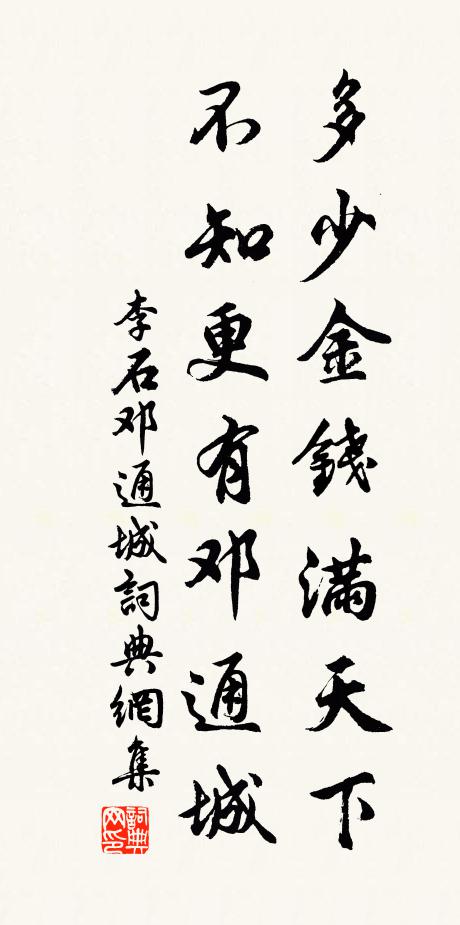 多少金錢滿天下
不知更有邓通城
李石邓通城詞典網集
詞典
网印